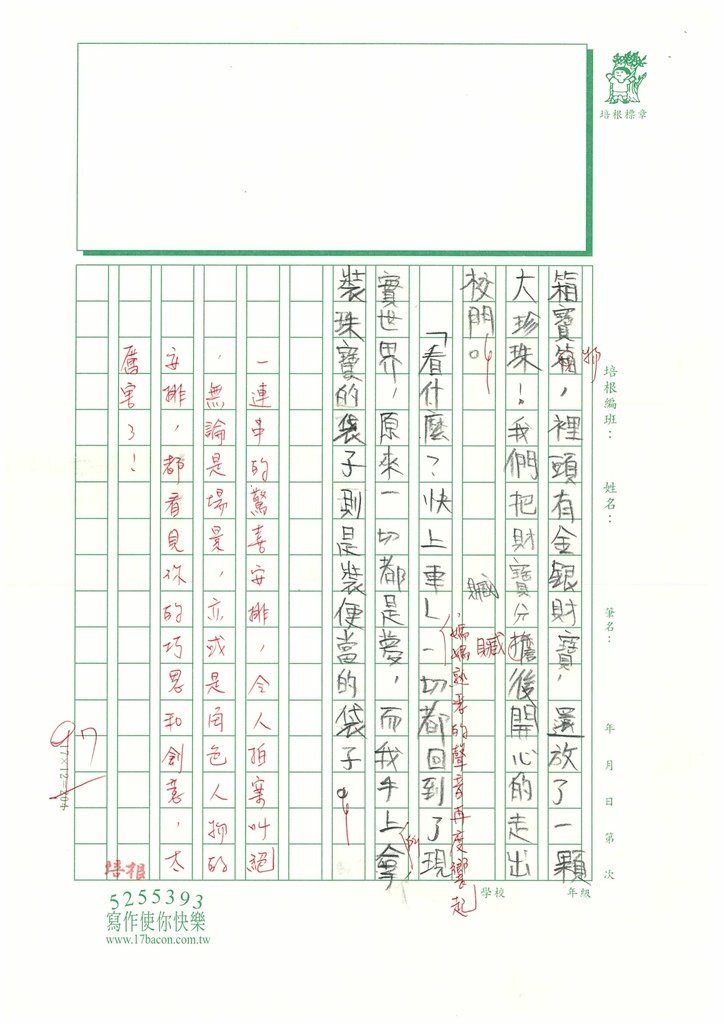 培根標章
培根編班：
姓名：
筆名：
年 月 日 第 次
學校
年級
箱寶箱，裡頭有金銀財寶，還放了一顆
物
大珍珠！我們把財寶分擔後開心的走出
贓
贓
校門。
「看什麼？快上車」一切都回到了現
媽媽熟悉的聲音再度響起
實世界，原來一切都是夢，而我手上拿
的
裝珠寶的袋子則是裝便當的袋子。
一連串的驚喜安排，令人拍案叫絕
，無論是場景，亦或是角色人物的
安排，都看見你的巧思和創意，太
厲害了！
97
17×12=204
培根
5255393
寫作使你快樂
www.17bacon.com.tw